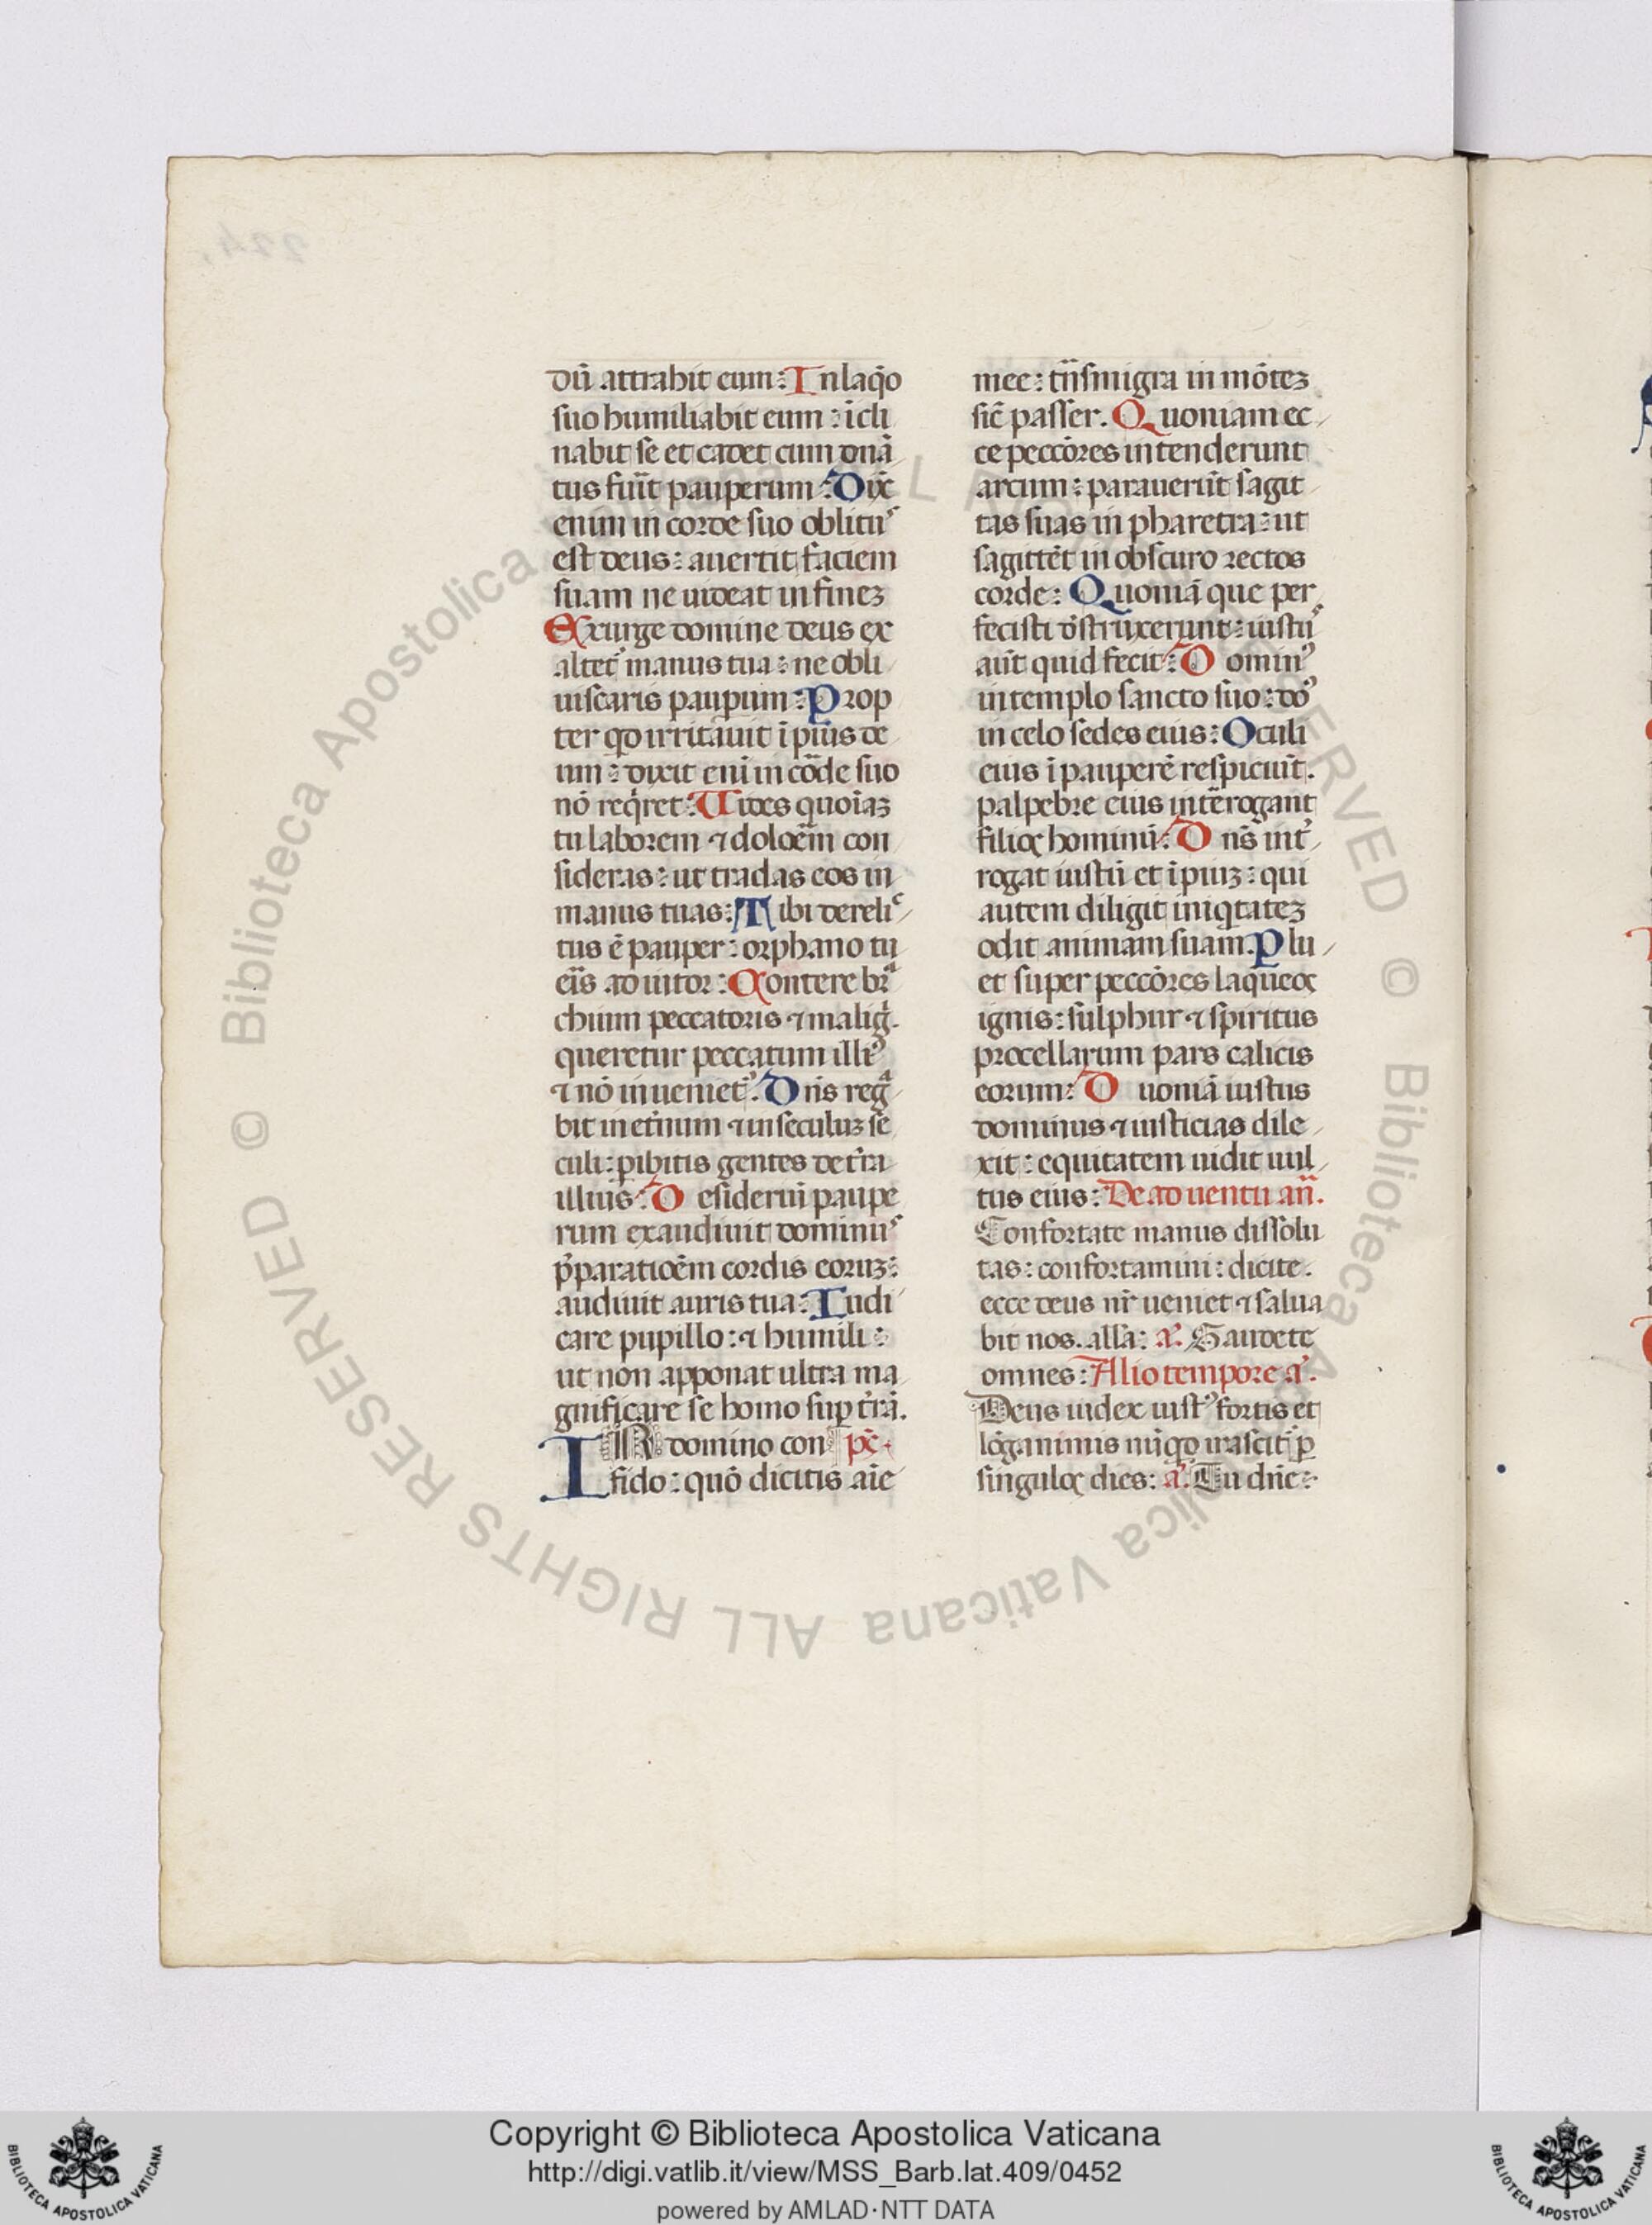 dū attrahit eum: In laq̄o
suo humiliabit eum: īcli
nabit se et cadet cum dnā
tus fuīt pauperum: Dix̄
enim in corde suo oblitu᷒
est deus: auertit faciem
suam ne uideat in finez
Exurge domine deus ex
altet᷒ manus tua: ne obli
uiscaris paup̲um: Prop
ter qd irritauit īpius de
um: dixit enī in cōde suo
nō reqͥret: Uides quoīaz
tu laborem ⁊ doloēm con
sideras: ut tradas eos in
manus tuas: Tibi dereliͨ
tus ē pauper: orphano tu
eīs adiutor: Contere brͣ
chium peccatoris ⁊ maligͥ.
queretur peccatum illi᷒
⁊ nō inueniet᷒. Dn̄s regͣ
bit in et̄num ⁊ in seculuz se
culi: ꝑibitis gentes de tr̄a
illius: Desideriū paupe
rum exaudiuit dominu᷒
p̄paratioēm cordis eoruz:
audiuit auris tua: Iudi
care pupillo: ⁊ humili:
ut non apponat ultra ma
gnificare se homo suꝑ tr̄ā.
IN domino con pͨ.
fido: quō dicitis aīe
mee: trn̄smigra in mōtez
sic̄ passer. Quoniam ec
ce peccōres intenderunt
arcum: parauerūt sagit
tas suas in pharetra: ut
sagittēt in obscuro rectos
corde: Quoniā que per
fecisti d̄struxerunt: iustu᷒
aūt quid fecit: Domin᷒
in templo sancto suo: do᷒
in celo sedes eius: Oculi
eius ī pauperē respiciūt.
palpebre eius intērogant
filioꝫ hominū: Dn̄s int̄
rogat iustū et īpiuz: qui
autem diligit iniqͥtatez
odit animam suam. Plu
et super peccōres laqueoꝫ
ignis: sulphur ⁊ spiritus
procellarum pars calicis
eorum: D uoniā iustus
dominus ⁊ iusticias dile
xit: equitatem uidit uul
tus eius: De aduentu an̄.
Confortate manus dissolu
tas: confortamini: dicite.
ecce deus nr̄ ueniet ⁊ salua
bit nos. all̄a: a᷒. Gaudete
omnes: Alio tempore a᷒.
Deus iudex iust᷒ fortis et
lōganimis nūqd irascit᷒ ꝑ
singuloꝫ dies: a᷒. Tu dn̄e:
Copyright © Biblioteca Apostolica Vaticana
http://digi.vatlib.it/view/MSS_Barb.lat.409/0452
powered by AMLAD·NTT DATA
© Biblioteca Apostolica Vaticana ALL RIGHTS RESERVED
© Biblioteca Apostolica Vaticana ALL RIGHTS RESERVED
BIBLIOTECA APOSTOLICA VATICANA
BIBLIOTECA APOSTOLICA VATICANA